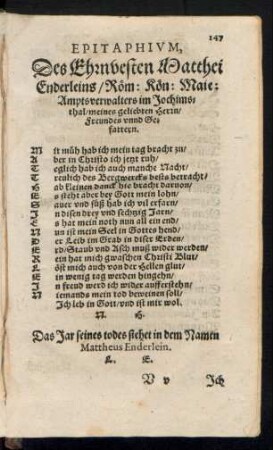 147
EPITAPHIVM,
Des Ehrnvesten Matthei
Enderleins / Röm: Kön: Maie:
Amptsverwalters im Jochims-
thal / meines geliebten Herrn /
Freundes vnnd Ge-
fattern.
Mit müh hab ich mein tag bracht zu /
Aber in Christo ich jetzt ruh /
Teglich hab ich auch manche Nacht /
Trewlich des Bergwercks bests betracht /
Hab kleinen danck hie bracht daruon /
Es steht aber bey Gott mein lohn /
Sauer vnd süß hab ich vil erfarn /
In disen drey vnd sechtzig Jarn /
Es hat mein noth nun all ein end /
Nun ist mein Seel in Gottes hend /
Der Leib im Grab in diser Erden /
Erd / Staub vnd Asch muß wider werden /
Rein hat mich gwaschen Christi Blut /
Löst mich auch von der Hellen glut /
Es in wenig tag werden hingehn /
In freud werd ich wider aufferstehn /
Niemands mein tod beweinen soll /
Ich leb in Gott / vnd ist mir wol.
N. H.
Das Jar seines todes stehet in dem Namen
Mattheus Enderlein.
L. E.
V v Ich